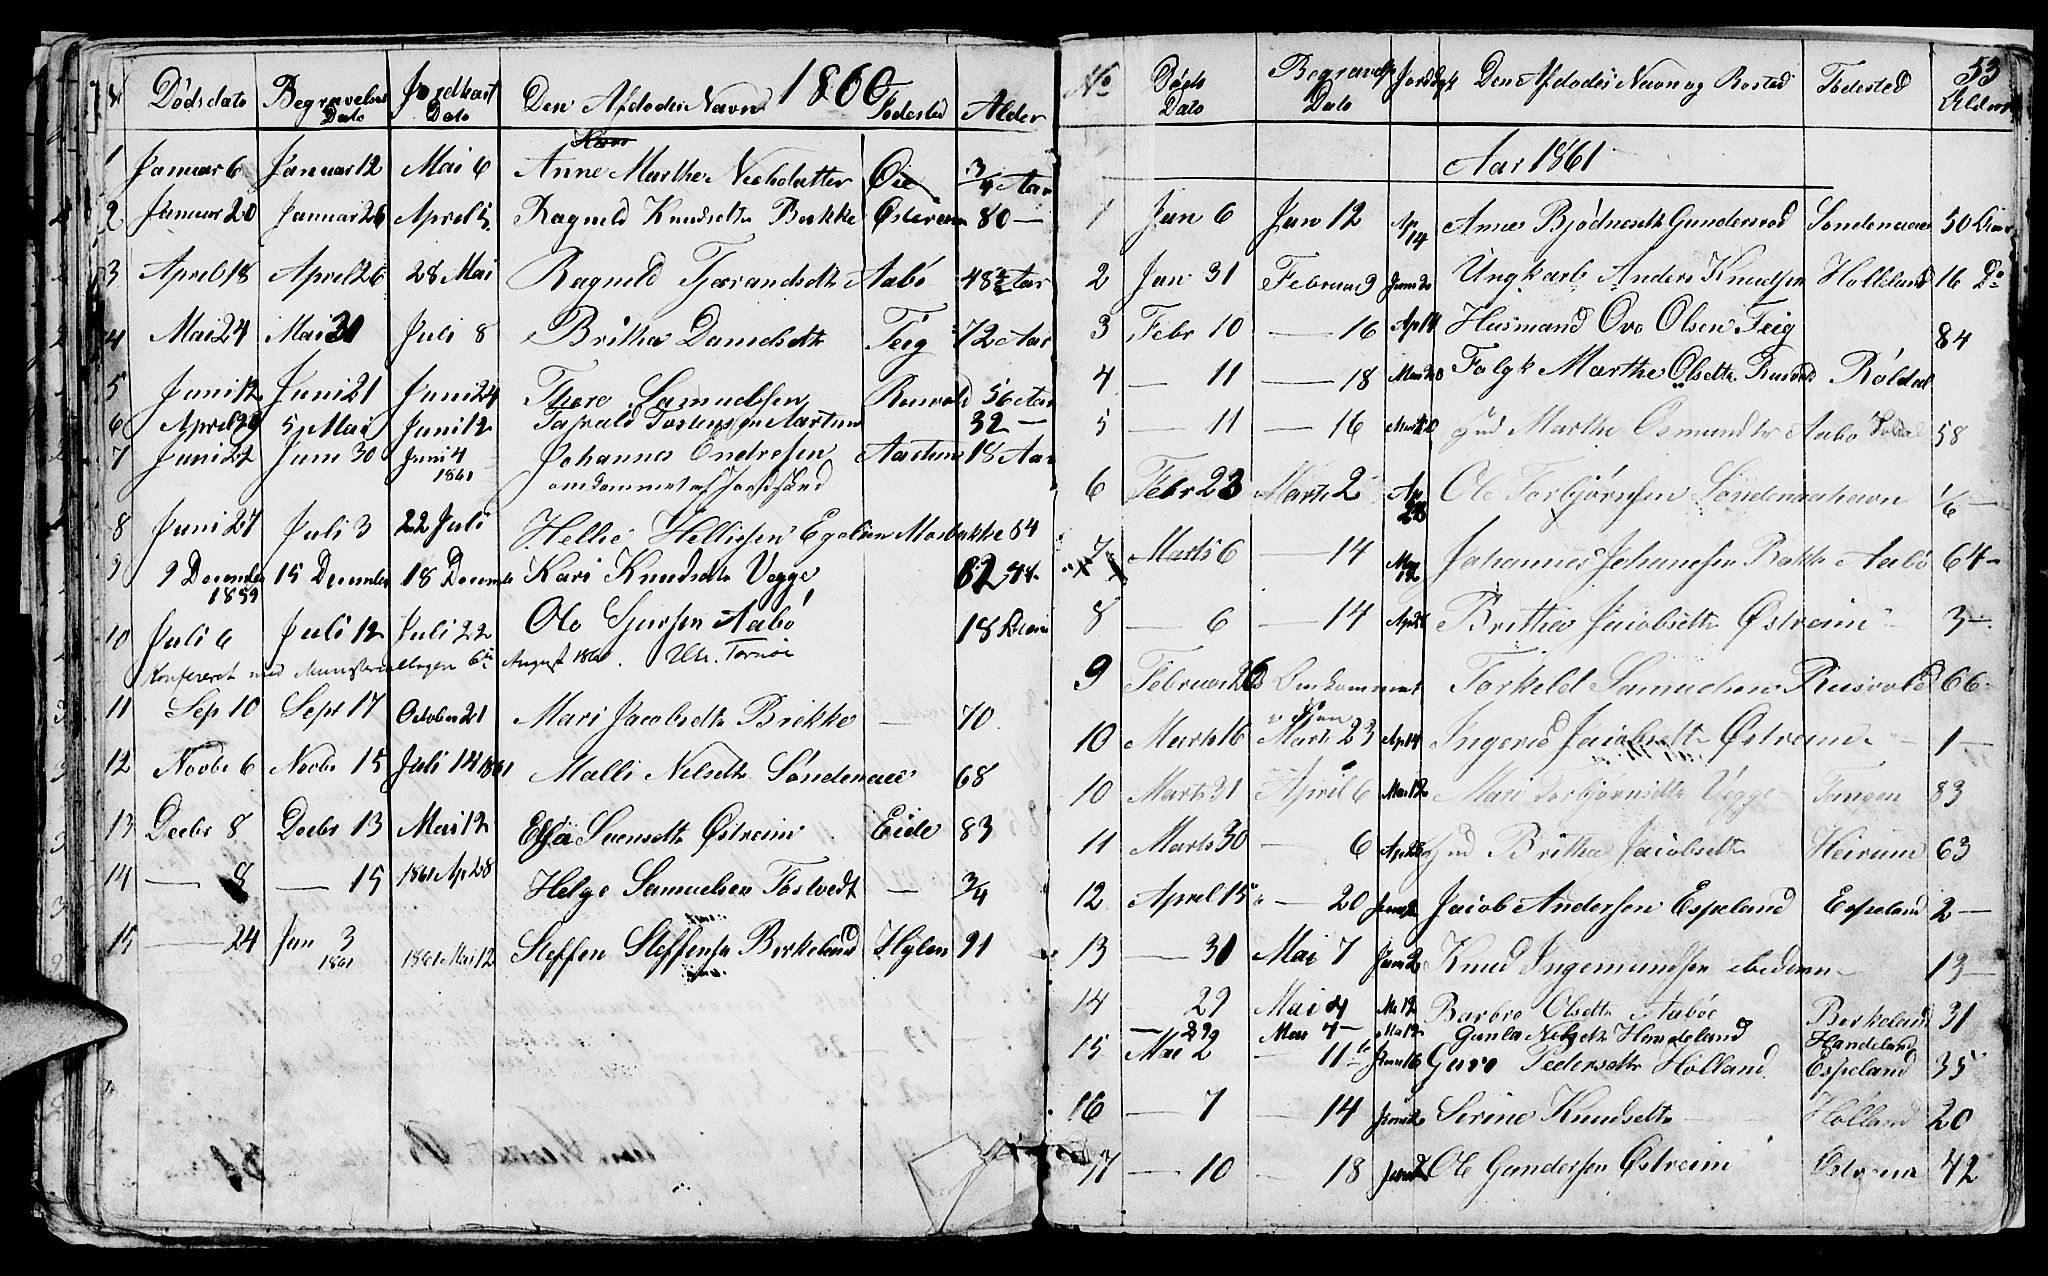 N Dødsdato Begravelses Dato Jordkast Dato Den Afdødes Navn 1860 Fødested Alder
1 Januar 6 Januar 12 Mai 6 Anne Marthe Neelsdatter Øie 3/4 Aar
2 Januar 20 Januar 26 April 5 Ragneld Knudsdtr Bakke Østreim 80 —
3 April 18 April 26 28 Mai Ragneld Tjerandsdtr Aabø 48 Aar
4 Mai 24 Mai 31 Juli 8 Britha Danielsdtr Teig 72 Aar
5 Juni 12 Juni 21 Juni 24 Thore Samuelsen Rusvold 56 Aar
6 April 29 5 Mai Juni 12 Tarald Tostensen Aartun 32 —
7 Juni 22 Juni 30 Juni 4 1861 Johannes Endresen Aartun 18 Aar
omkommet af Jordskred
8 Juni 27 Juli 3 22 Juli Hellie Hellissen Egelien Mosbakke 84
9 9 December 1859 15 December 18 Decembr Kari Knudsdtr Vegge 82
10 Juli 6 Juli 12 Juli 22 Ole Sjursen Aabø 18
Konfereret med Ministerialbogen 6te August 1860. Tornøe
11 Sep 10 Sept 17 October 21 Mari Jacobsdtr Brekke — 70
12 Novbr 6 Novbr 15 Juli 14 1861 Malli Nelsdtr Søndenaae 68
13 Decbr 8 Decbr 13 Mai 12 Elsa Svensdtr Østreim Eide 83
14 — 8 — 15 1861 Ap 28 Helge Samuelsen Tostvedt — 3/4
15 — 24 Jan 3 1861 1861 Mai 12 Steffen Steffensen Berkeland Hylen 91
53
No Døds Dato Begravelse Dato Jordsfk Den Afdødes Navn og Bosted Fødested Alder
Aar 1861
1 Jan 6 Jan 12 Ap 14 Anne Bjødnesdtr Gundersod Søndenaae 50
2 Jan 31 Februar 9 Juni 2 Ungkarl Anders Knudsen Holleland 16 Do
3 Febr 10 — 16 Ap 14 Husmand Ove Olsen Teig 84
4 — 11 — 18 Folgk Marthe Olsdtr Rusvold Røldal
5 — 11 — 16 Gud Marthe Osmundsdtr Aabø 58
6 Febr 23 Marts 2 Ap 28 Ole Torbjørnsen Søndenaahavn 1/6 —
7 Marts 6 — 14 Mai 12 Johannes Johanesen Bakke Aabø 64 —
8 — 6 — 14 Ap 28 Britha Jacobsdtr Østreim 3 —
9 Februar 26 Omkommet Torkeld Samuelsen Rusvold 66 —
10 Marts 16 Marts 23 Ap 14 Ingerid Jacobsdtr Østreim — 1 —
10 Marts 31 April 6 Mai 12 Mari Torbjørnsdtr Vegge Tangen 83
11 Marts 30 — 6 Ap 28 Gud Britha Jacobsdtr Heirum 63
12 April 15 — 20 Juni 2 Jacob Andersen Espeland Espeland 2 —
13 — 31 Mai 7 Juni 2 Knud Ingemundsen ibidem — 13 —
14 — 29 Mai 4 Ma 12 Barbro Olsdtr Aabøe Berkeland 31
— 29 Mai 7 — Ma 12 Gunla Nelsdtr Handeland Handeland
15 Mai 2 — 11te Juni 16 Guro Pedersdtr Holland Espeland 35
16 — 7 — 14 Juni 2 Serine Knudsdtr Holland 20
17 — 10 — 18 Juni 2 Ole Gundersen Østreim Østreim 42